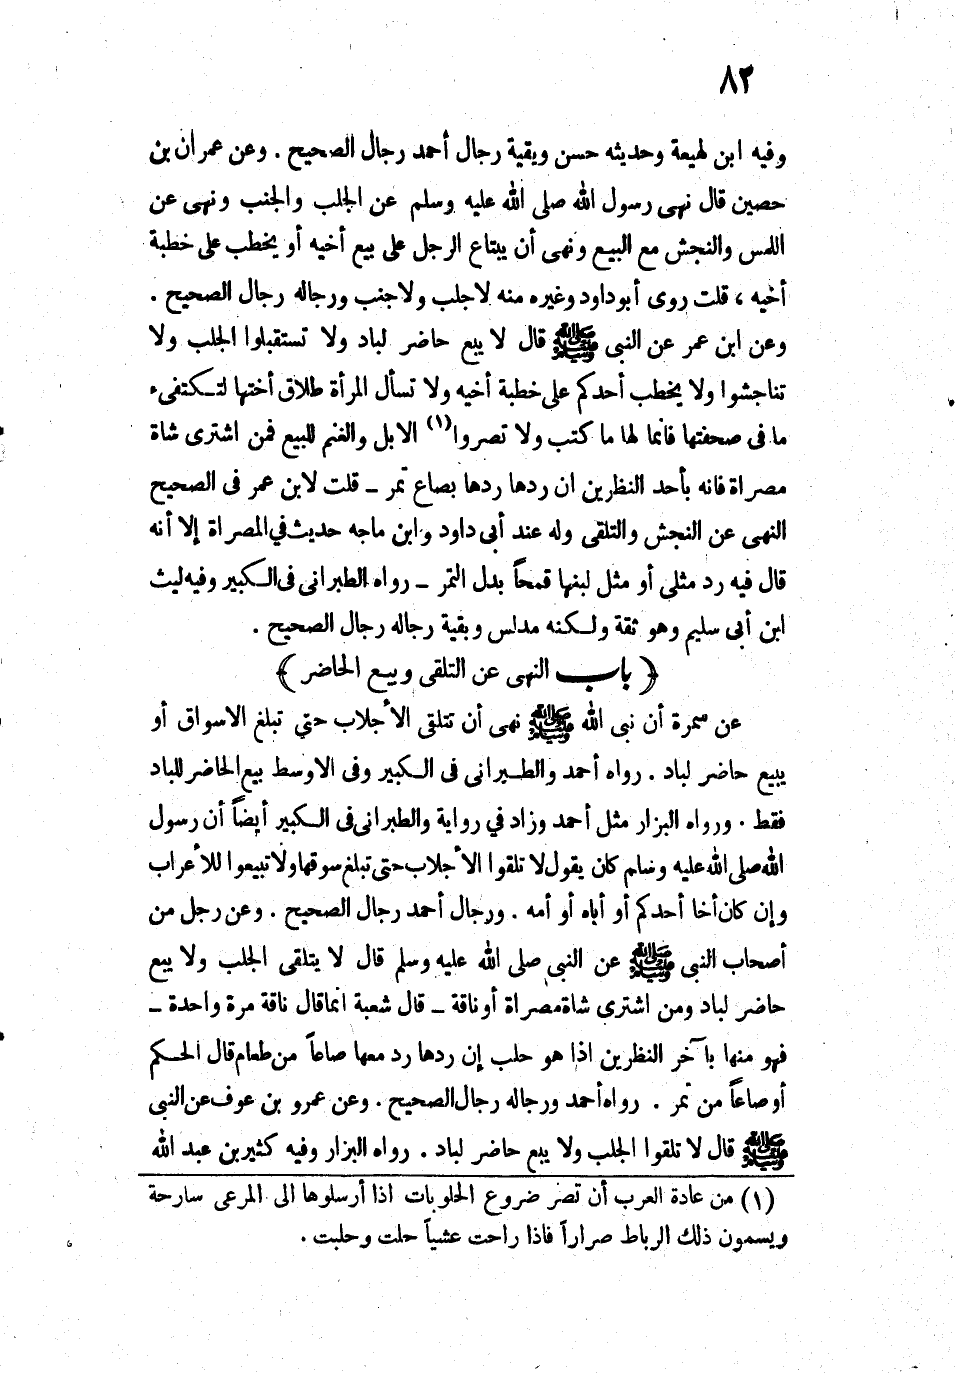 ٨٢
وفيه ابن لهيعة وحديثه حسن وبقية رجال أحمد رجال الصحيح . وعن عمران بن
حصين قال نهى رسول الله صلى الله عليه وسلم عن الجلب والجنب ونهى عن
اللمس والنجش مع البيع ونهى أن يبتاع الرجل على بيع أخيه أو يخطب على خطبة
أخيه ، قلت روى أبوداود وغيره منه لاجلب ولاجنب ورجاله رجال الصحيح .
وعن ابن عمر عن النبى ﷺ قال لا يبع حاضر لباد ولا تستقبلوا الجلب ولا
تناجشوا ولا يخطب أحدكم على خطبة أخيه ولا تسأل المرأة طلاق أختها لتكتفىء
ما فى صحفتها فانما لها ما كتب ولا تصروا(١) الابل والغنم للبيع فمن اشترى شاة
مصراة فانه بأحد النظرين ان ردها ردها بصاع تمر ـ قلت لابن عمر فى الصحيح
النهى عن النجش والتلقى وله عند أبى داود وابن ماجه حديث في المصراة إلا أنه
قال فيه رد مثلى أو مثل لبنها قمحاً بدل التمر ـ رواه الطبرانى فى الكبير وفيه ليث
ابن أبى سليم وهو ثقة ولكنه مدلس وبقية رجاله رجال الصحيح .
﴿ باب النهى عن التلقى وبيع الحاضر ﴾
عن سمرة أن نبى الله ﷺ نهى أن تتلقى الأجلاب حتي تبلغ الاسواق أو
يبيع حاضر لباد . رواه أحمد والطبرانى فى الكبير وفى الاوسط بيع الحاضر للباد
فقط . ورواه البزار مثل أحمد وزاد في رواية والطبرانى فى الكبير أيضاً أن رسول
الله صلى الله عليه وسلم كان يقول لا تلقوا الأجلاب حتى تبلغ سوقها ولا تبيعوا للأعراب
وإن كان أخا أحدكم أو أباه أو أمه . ورجال أحمد رجال الصحيح . وعن رجل من
أصحاب النبي ﷺ عن النبى صلى الله عليه وسلم قال لا يتلقى الجلب ولا يبع
حاضر لباد ومن اشترى شاة مصراة أو ناقة ـ قال شعبة انما قال ناقة مرة واحدة ـ
فهو منها بآخر النظرين اذا هو حلب إن ردها رد معها صاعاً من طعام قال الحكم
أوصاعاً من تمر . رواه أحمد ورجاله رجال الصحيح . وعن عمرو بن عوف عن النبى
ﷺ قال لا تلقوا الجلب ولا يبع حاضر لباد . رواه البزار وفيه كثير بن عبد الله
(١) من عادة العرب أن تصر ضروع الحلوبات اذا أرسلوها الى المرعى سارحة
ويسمون ذلك الرباط صراراً فاذا راحت عشياً حلت وحلبت .